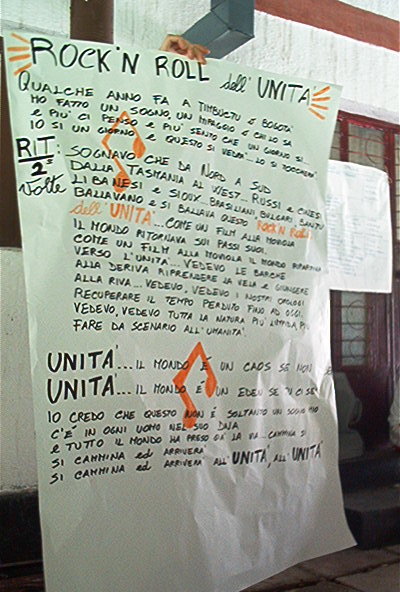 ROCK'N ROLL dell'UNITA'
QUALCHE ANNO FA A TIMBUCTU o BOGOTA'
HO FATTO UN SOGNO, UN MIRAGGIO o CHI LO SA
e PIU' CI PENSO e PIU' SENTO CHE UN GIORNO SI..
IO SI UN GIORNO e QUESTO SI VEDRA'.. LO SI TOCCHERA'
RIT: 2 volte
SOGNAVO CHE DA NORD A SUD
DALLA TASMANIA AL WEST... RUSSI e CINESI
LIBANESI e SIOUX.. BRASILIANI BULGARI BANTU'
BALLAVANO e SI BALLAVA QUESTO ROCK'N ROLL
dell'UNITA'... COME UN FILM ALLA MOVIOLA
IL MONDO RITORNAVA SUI PASSI SUOI
COME UN FILM ALLA MOVIOLA IL MONDO RIPARTIVA
VERSO L'UNITA'... VEDEVO LE BARCHE
ALLA DERIVA RIPRENDERE LA VELA e GIUNGERE
ALLA RIVA... VEDEVO, VEDEVO I NOSTRI OROLOGI
RECUPERARE IL TEMPO PERDUTO FINO AD OGGI.
VEDEVO, VEDEVO TUTTA LA NATURA PIU' LIMPIDA PIU'
FARE DA SCENARIO ALL'UMANITA'.
UNITA'... IL MONDO E' UN CAOS SE NON
UNITA'... IL MONDO E' UN EDEN SE TU CI SE
IO CREDO CHE QUESTO NON E' SOLTANTO UN SOGNO MIO
C'E' IN OGNI UOMO NEL SUO DNA
e TUTTO IL MONDO HA PRESO GIA' LA VIA... CAMMINA SI
SI CAMMINA ed ARRIVERA'
SI CAMMINA ed ARRIVERA' ALL'UNITA', ALL'UNITA'